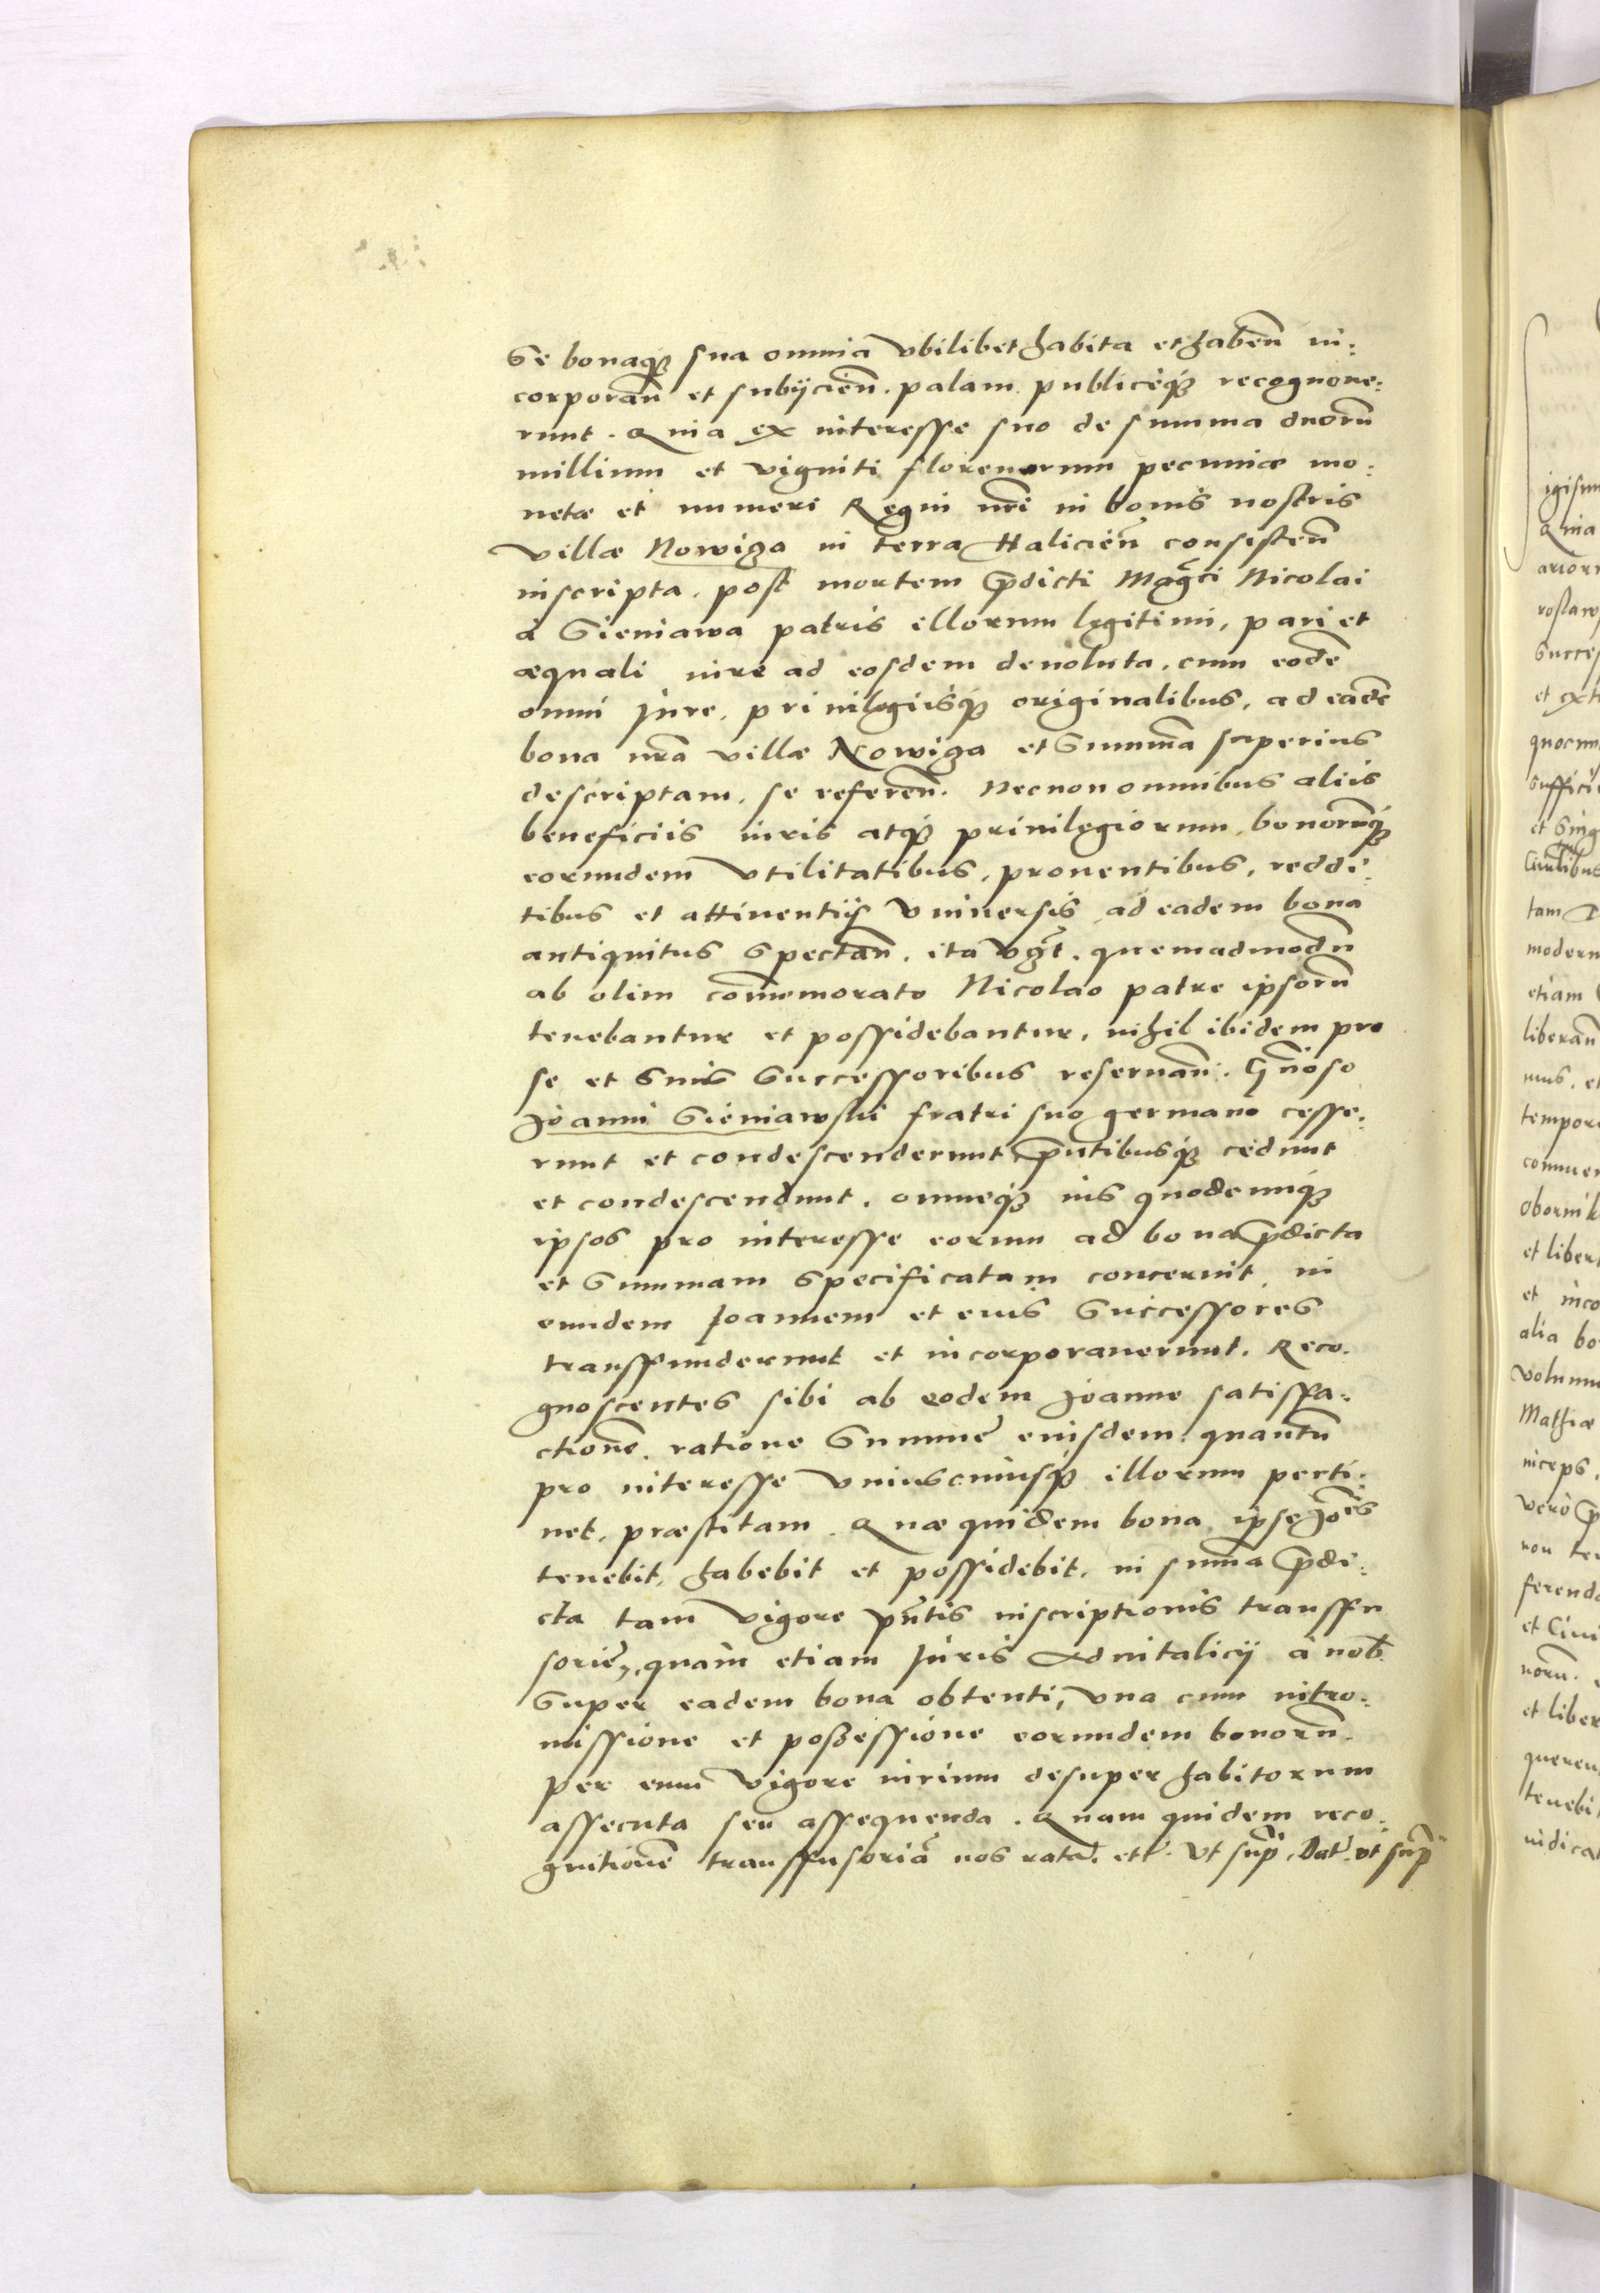 Se bonaq̃ȝ sua omnia vbilibet habita et habeñ in:
corporañ et subijcieñ. palam publiceq̃ȝ recognoue:
runt. Quia ex interesse suo de summa duorũ
millium et viginti florenorum pecuniæ mo:
netæ et numeri Regni nr̃i in bonis nostris
villæ Nowiga in terra Halicieñ consisteñ
inscripta. post mortem p̃dicti Mag̃ci Nicolai
à Sieniawa patris illorum legitimi, pari et
æquali iure ad eosdem deuoluta. cum eodẽ
omni jure, priuilegijsq̃ȝ originalibus, ad eadẽ
bona nr̃a villæ Nowiga et Summã superius
descriptam, se refereñ. Necnon omnibus aliis
beneficiis iuris atq̃ȝ priuilegiorum, bonorũq̃ȝ
eorundem vtilitatibus, prouentibus, reddi:
tibus et attinentijs vniuersis ad eadem bona
antiquitus spectañ. ita vgt̃. quemadmodũ
ab olim cõmemorato Nicolao patre ipsorũ
tenebantur et possidebantur, nihil ibidem pro
se et suis Successoribus reseruañ. Gñoso
Joanni Sieniawski fratri suo germano cesse:
runt et condescenderunt p̃ntibusq̃ȝ cedunt
et condescendunt. omneq̃ȝ ius quodcunq̃ȝ
ipsos pro interesse eorum ad bona p̃dicta
et Summam specificatam concernit, in
eundem Joannem et eius Successores
transfunderunt et incorporauerunt. Reco:
gnoscentes sibi ab eodem Joanne satisfa:
ctionẽ. ratione Summe eiusdem. quantũ
pro interesse vniuscuiusq̃ȝ illorum perti:
net, præstitam. Quæ quidem bona ipse Joẽs
tenebit, habebit et possidebit, in sum̃a p̃di:
cta tam vigore pñtis inscriptionis transfu
sorie, quàm etiam juris Aduitalicij à nob̃
Super eadem bona obtenti, vna cum intro:
missione et possessione eorundem bonorũ.
per eum vigore iurium desuper habitorum
assecuta seu assequenda. Quam quidem reco:
gnitionẽ transfusoriã nos ratã. etc̃. Vt sup̃. Dat̃. vt sup̃